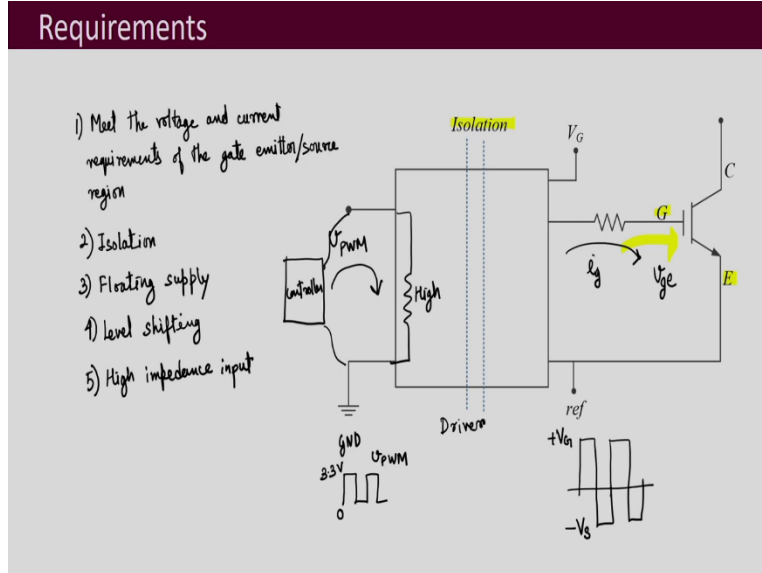 Requirements
1) Meet the voltage and current
requirements of the gate emitter/source
region
2) Isolation
3) Floating supply
4) Level shifting
5) High impedance input
Isolation
V_G
C
G
E
i_g
v_ge
v_PWM
Controller
High
Driver
ref
GND
3.3V
v_PWM
0
+V_G
-V_S